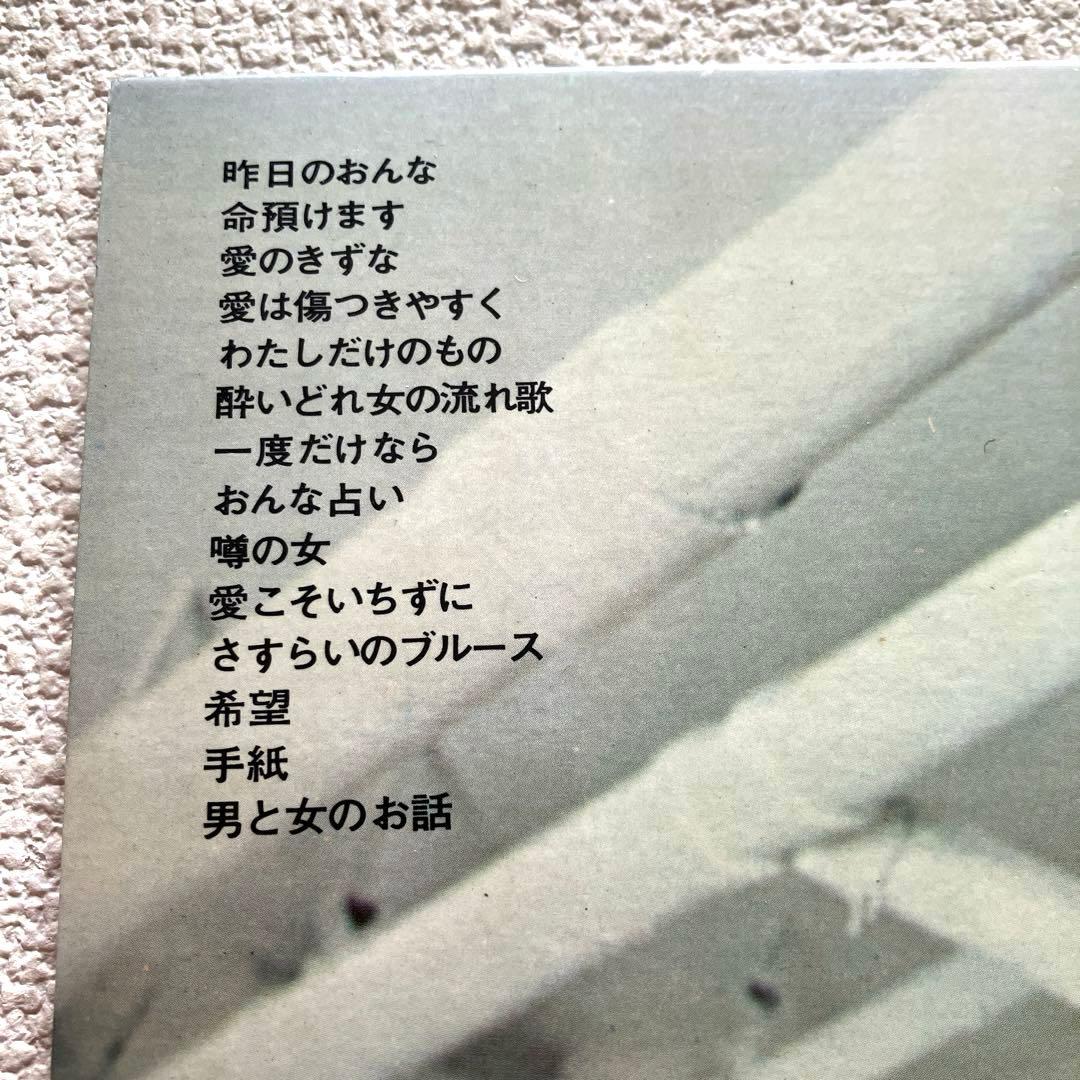 昨日のおんな
命預けます
愛のきずな
愛は傷つきやすく
わたしだけのもの
酔いどれ女の流れ歌
一度だけなら
おんな占い
噂の女
愛こそいちずに
さすらいのブルース
希望
手紙
男と女のお話